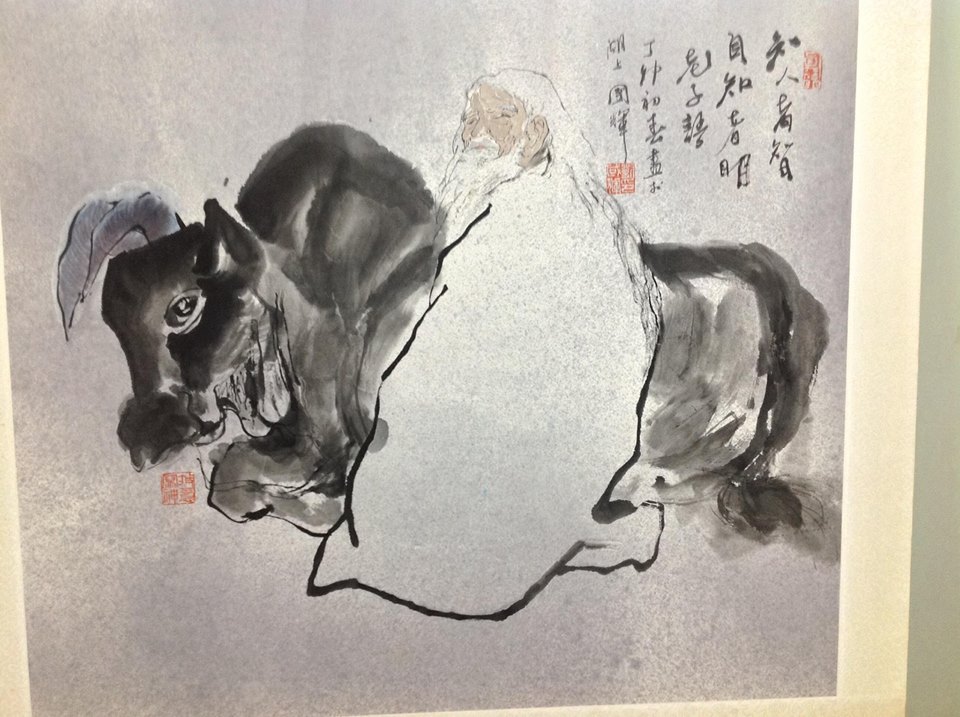 知人者智
自知者明
老子語
丁卯初春畫於
湖上 國輝